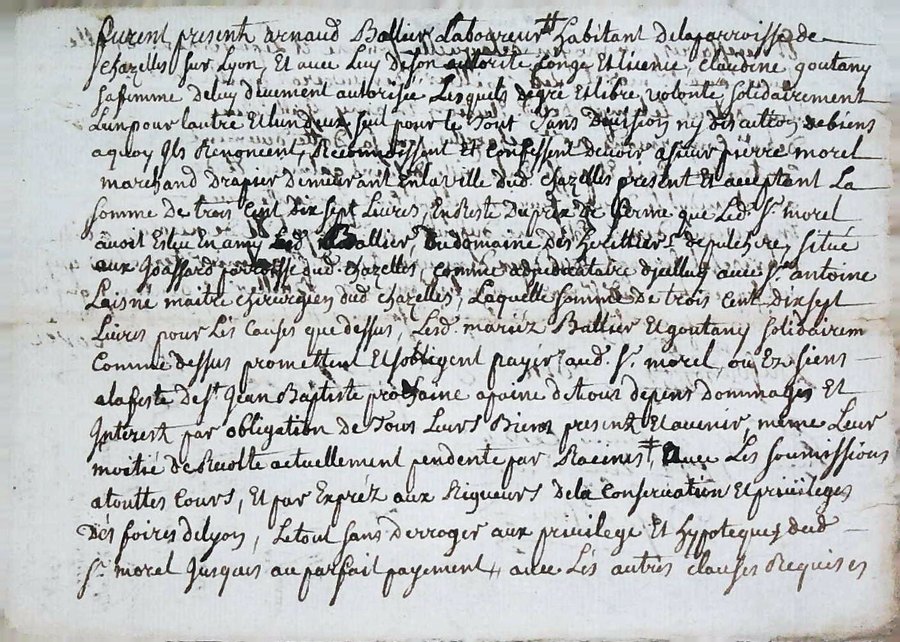 furent present arnaud Ballier Laboureur habitant delaparroisse de
chazelles sur Lyon, Et avec Luy deson authorité Conge Et licence Claudine goutany
safemme deluy deuement autorisée Lesquels degre Et libre volonté solidairement
Lun pour Lautre Et lun deux seul pour le tout sans Division ny discution debiens
aquoy Ils Renoncent, Reconnoissent Et Confessent devoir asieur pierre morel
marchand drapier demeurant Enlaville dud. chazelles present Et acceptant La
somme de trois Cent dix sept Livres, En Reste Du prix de ferme que Led. Sr. morel
avoit Led. Ballier Dudomaine des heritiers depulchre, situé
aux parroisse dud. chazelles, comme adjudicataire avec Sr. antoine
Laisné maitre chirurgien dud chazelles, Laquelle somme de trois Cent dix sept
Livres pour Les Causes que dessus, Lesd. mariéz Ballier Et goutany solidairem
Comme dessus promettent Et sobligent payer aud. Sr. morel, ou Ez siens
alafeste de St. Jean Baptiste prochaine apeine detous depens dommages Et
Interest par obligation de Tous Leurs Biens present Et avenir, meme Leur
moitié de Recolte actuellement pendente par Racines, avec Les soumissions
atouttes Cours, Et par Expréz aux Rigueurs dela Conservation Et privileges
Dés foires delyon, Letout sans derroger aux privilege Et hypoteques dud
Sr. morel Jusques au parfait payement, avec Les autres clauses Requises